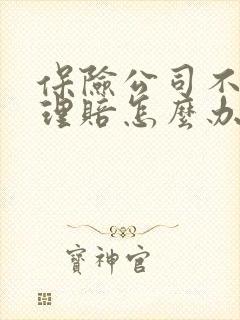 保險公司不
理賠怎麼办
寶神官